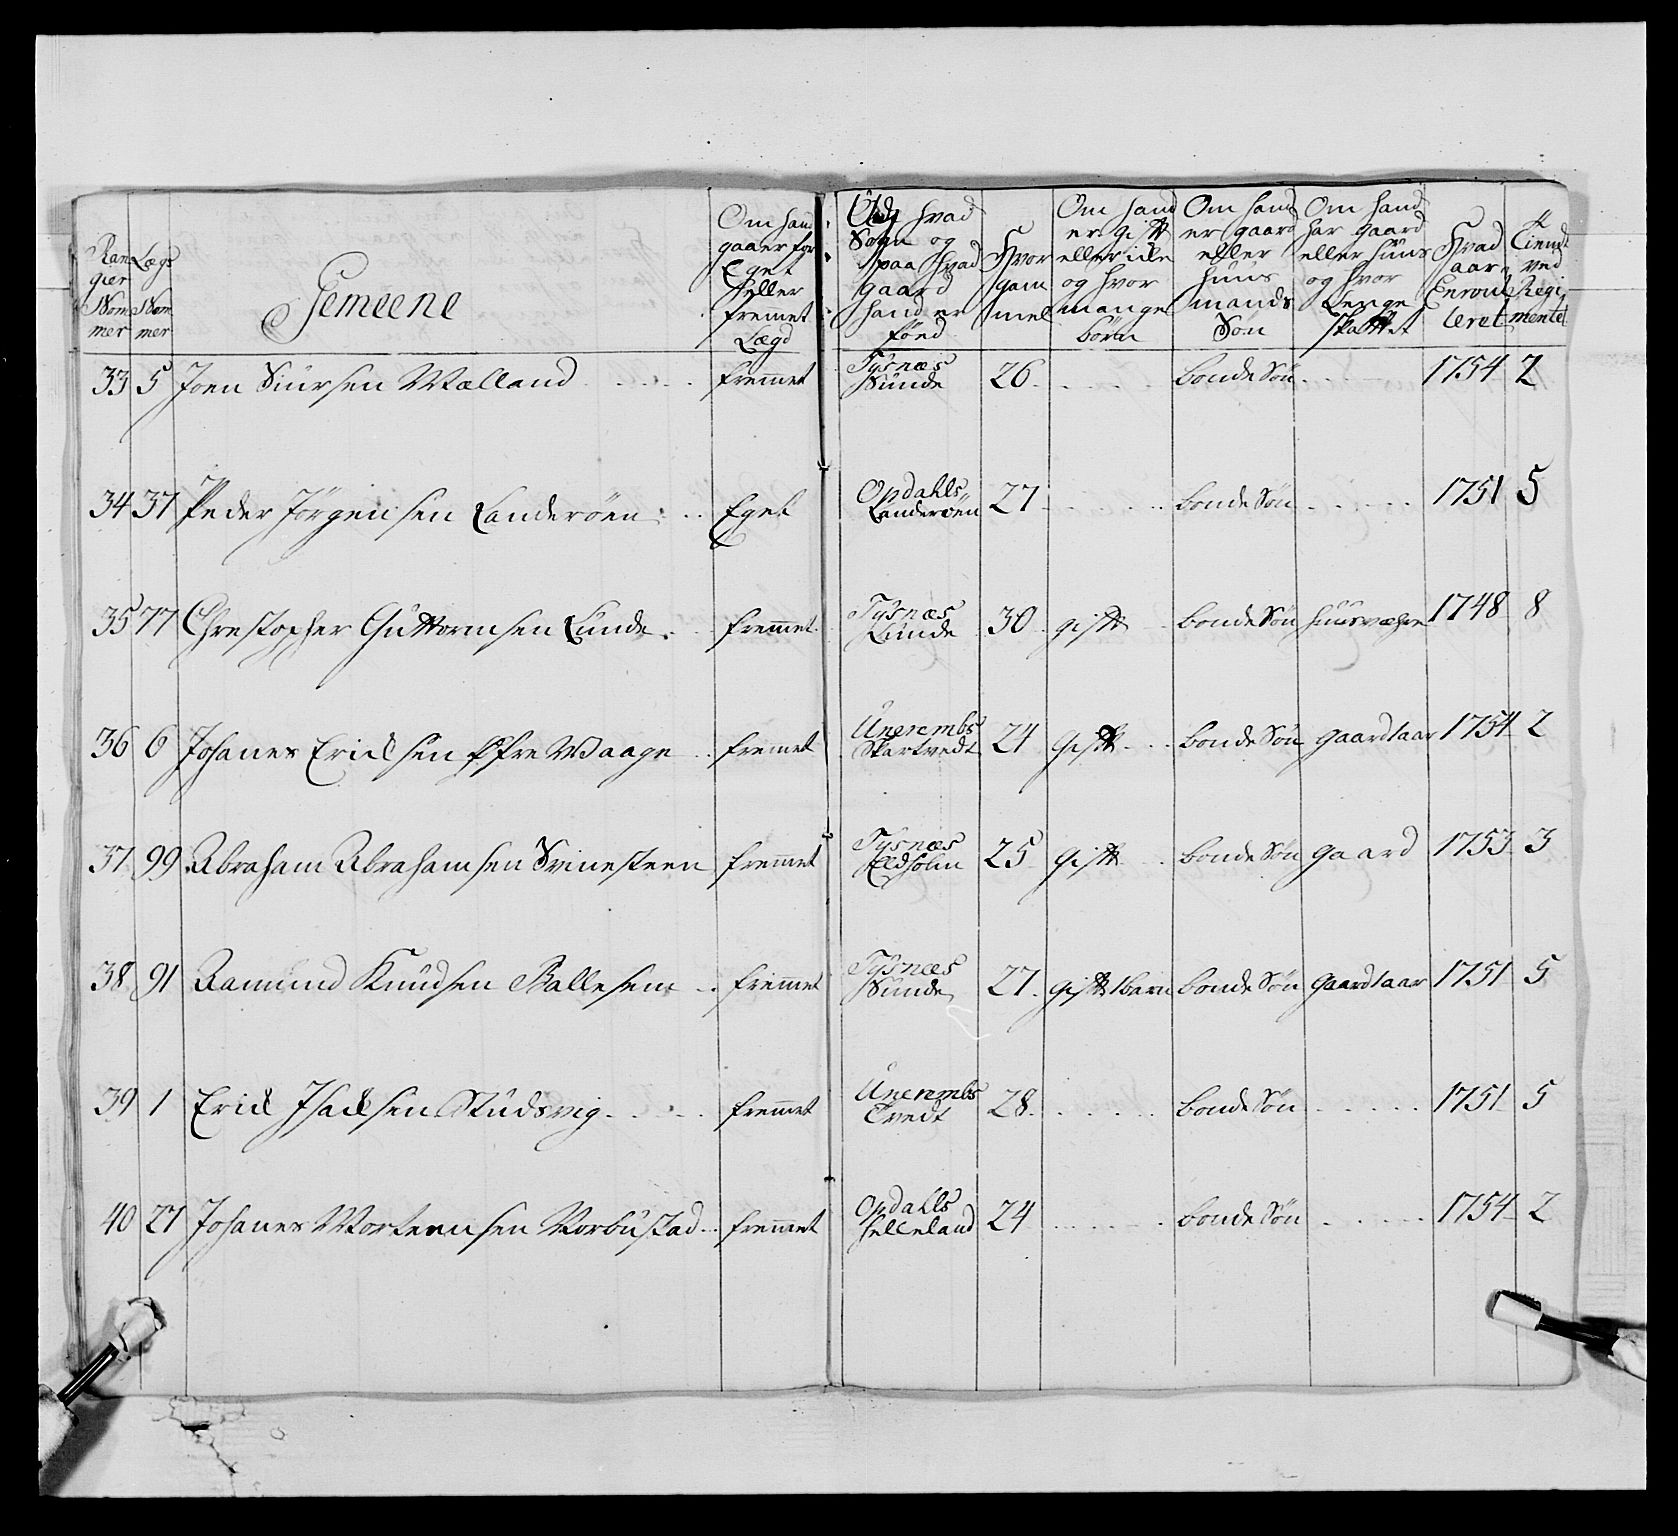 Rangier Nommer | Lægs Nommer | Gemeene | Om hand gaaer for Eget eller fremet Lægd | Udj hvad Sogn og paa hvad gaard hand er föed | Hvor gammel | Om hand er gift eller icke og hvor mange börn | Om hand er gaard eller huus mands Søn | Om hand har gaard eller huus og hvor Lenge skattet | Hvad aar Enroulleret | Tient ved Regimentet
33 | 5 | Joen Siursen Malland | fremmet | Tysnæs Sunde | 26 | bonde Søn | 1754 | 2
34 | 37 | Peder Jörgensen Landeröen | Eget | Opdahls Landeröen | 27 | bonde Søn | 1751 | 5
35 | 77 | Chrestopher Guttormsen Lunde | fremmet | Tysnæs Lunde | 30 | gift | bonde Søn | 1748 | 8
36 | 6 | Johanes Ericksen Øfre Waage | fremet | Unerembs Skartvedt | 24 | gift | bonde Søn | gaard 1 aar | 1754 | 2
37 | 99 | Abraham Abrahamsen Svinesteen | fremmet | Tysnæs Eldholm | 25 | gift | bonde Søn | gaard | 1753 | 3
38 | 91 | Ramund Knudsen Ballesem | fremmet | Tysnæs Sunde | 27 | gift 1 barn | bonde Søn | gaard 1 aar | 1751 | 5
39 | 1 | Erick Isacksen Studsvig | fremmet | Unerembs Tvedt | 28 | bonde Søn | 1751 | 5
40 | 27 | Johanes Mortensen Norbustad | fremmet | Opdahls Helleland | 24 | bonde Søn | 1754 | 2